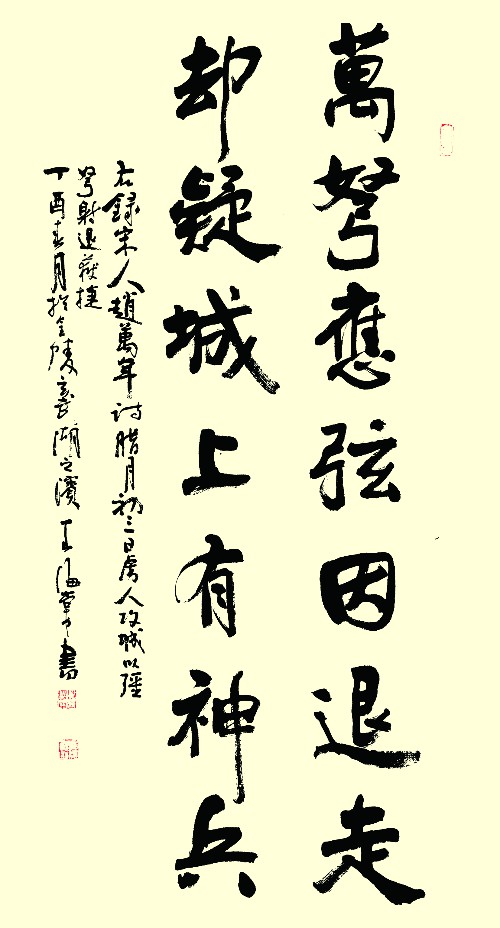 萬弩應弦因退走
却疑城上有神兵
右錄宋人趙萬年詩臘月初三日虜人攻城以強
弩射退獲捷
丁酉春月於金陵玄武湖之濱 王海 書